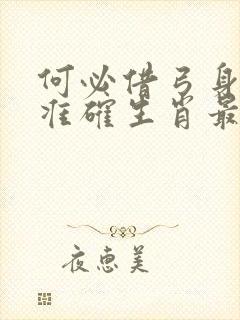 何必借弓身
准确生肖最
夜惠美